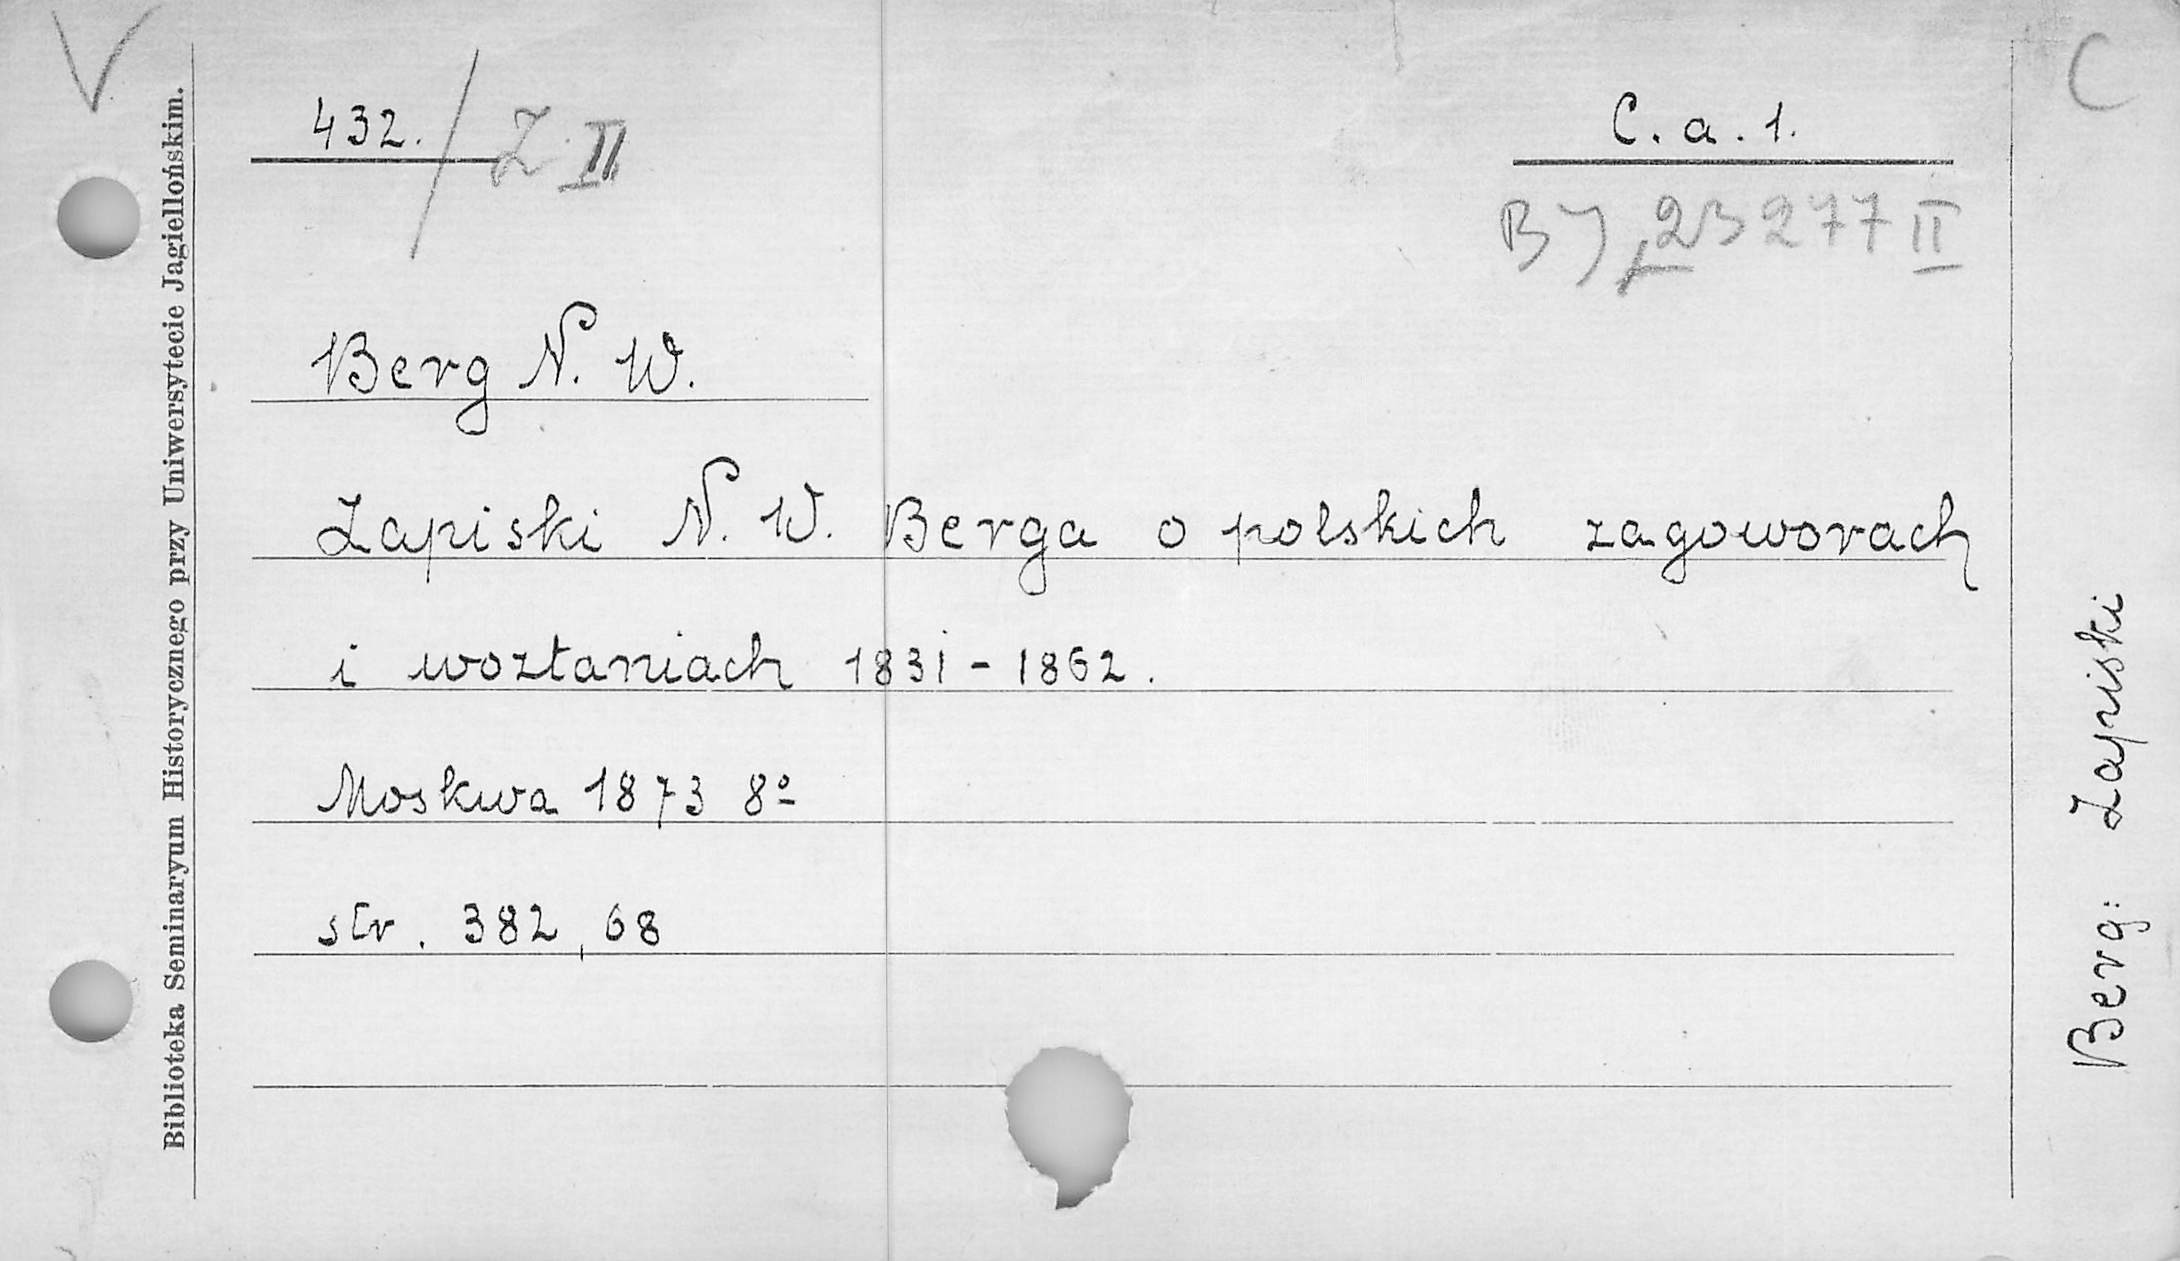 V
C
432. / Z. II
C. a. 1.
BJ, 23277 II
Berg N. W.
Zapiski N. W. Berga o polskich zagoworach
i woztaniach 1831 - 1862.
Moskwa 1873 8º
str. 382, 68
Biblioteka Seminaryum Historycznego przy Uniwersytecie Jagiellońskim.
Berg: Zapiski